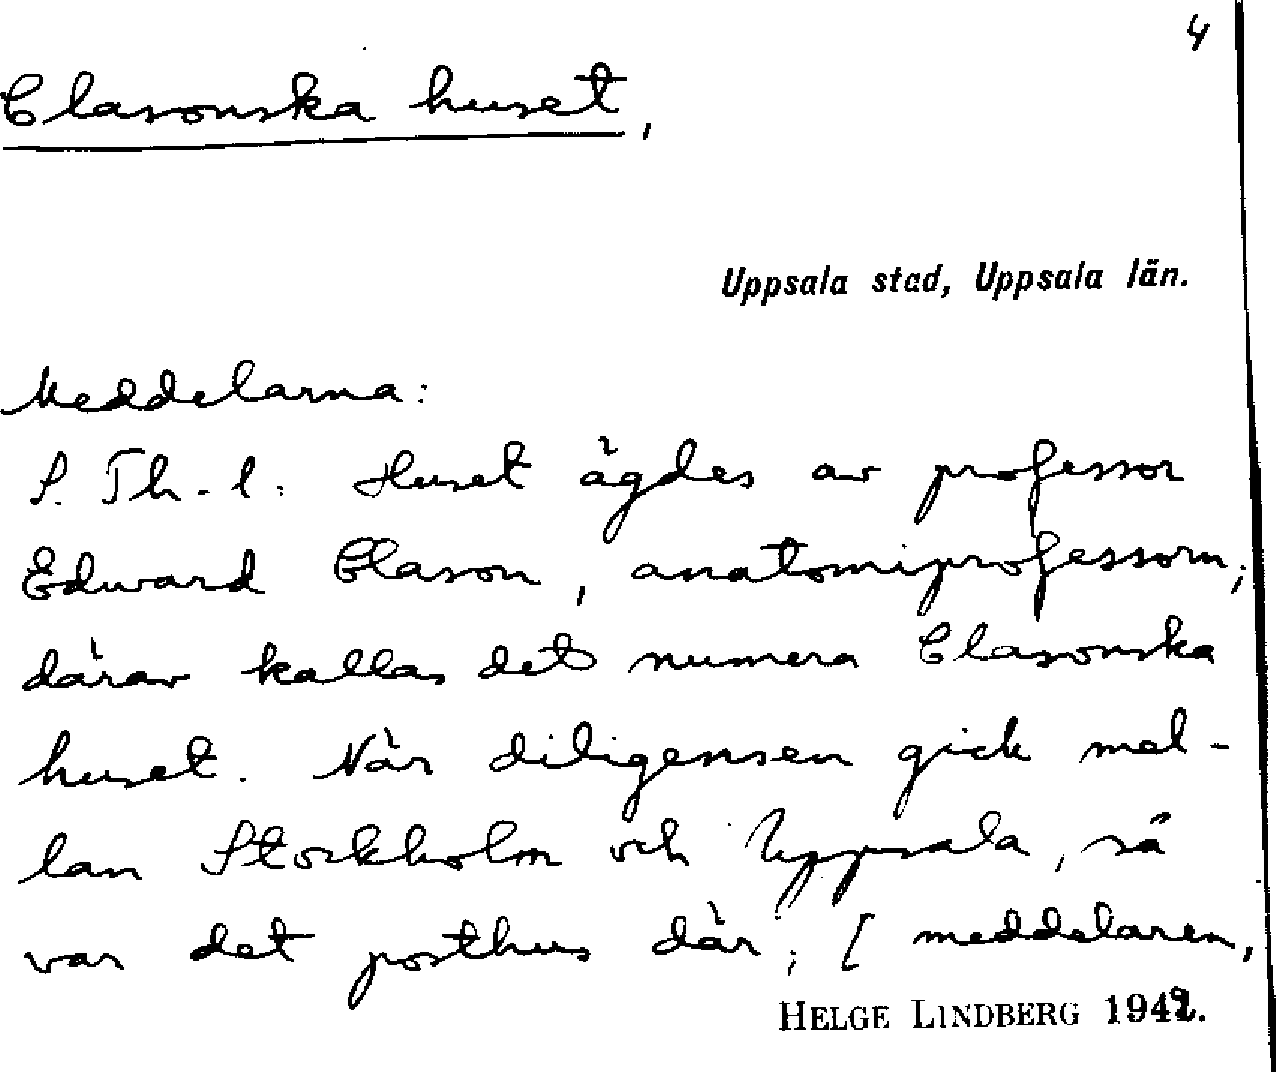 4
Clasonska huset,
Uppsala stad, Uppsala län.
Meddelarna:
S. Th-l: Huset ägdes av professor
Edward Clason, anatomiprofessorn;
därav kallas det numera Clasonska
huset. När diligensen gick mel-
lan Stockholm och Uppsala, så
var det posthus där; [meddelaren,
HELGE LINDBERG 1942.